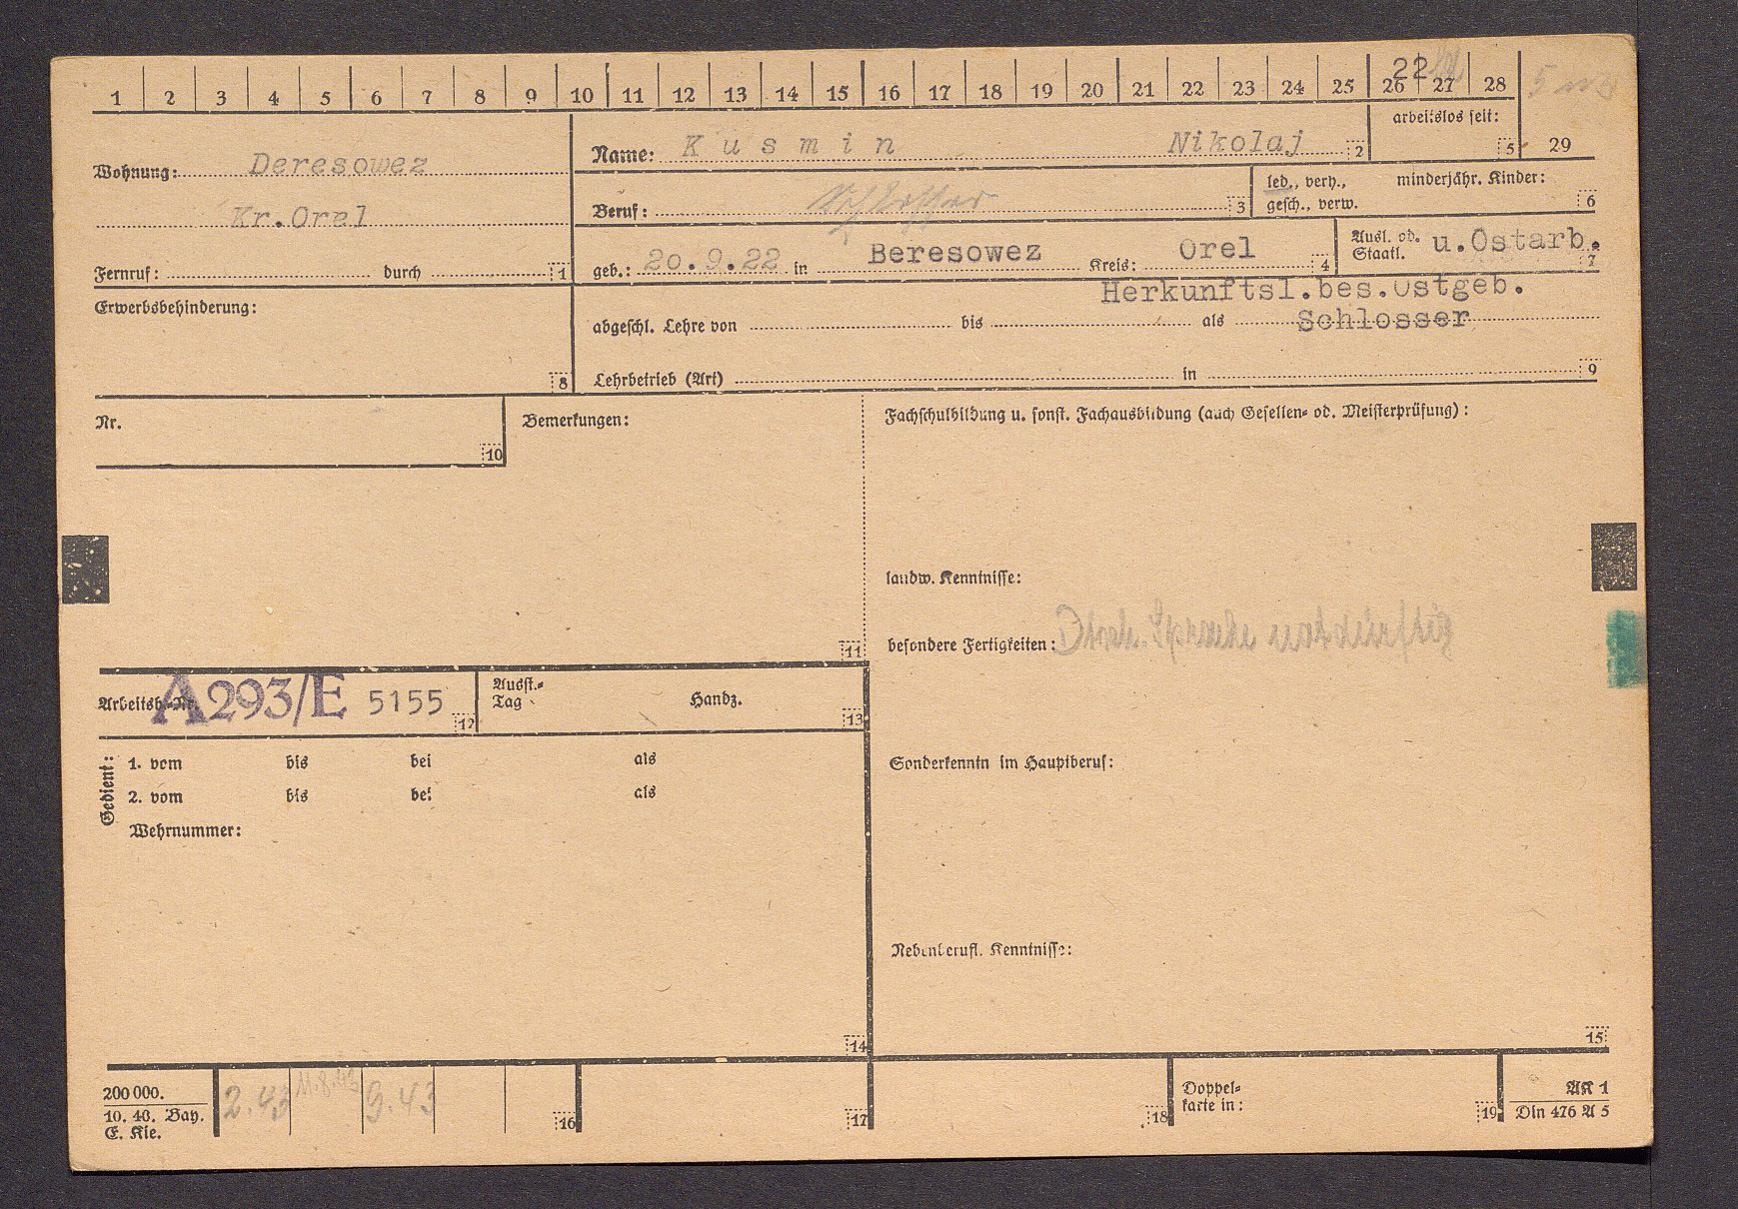 1 2 3 4 5 6 7 8 9 10 11 12 13 14 15 16 17 18 19 20 21 22 23 24 25 26 27 28
22
29
arbeitslos seit:
5
Wohnung: Deresowez
Kr.Orel
Fernruf: durch 1
Name: Kusmin Nikolaj 2
Beruf: Schlosser 3
led., verh., minderjähr. Kinder:
gesch., verw. 6
geb.: 20.9.22 in Beresowez Kreis: Orel 4
Ausl. od. u.Ostarb.
Staatl. 7
Herkunftsl.bes.Ostgeb.
Erwerbsbehinderung:
8
abgeschl. Lehre von bis als Schlosser
Lehrbetrieb (Art) in 9
Nr.
10
Bemerkungen:
11
Fachschulbildung u. sonst. Fachausbildung (auch Gesellen- od. Meisterprüfung):
landw. Kenntnisse:
besondere Fertigkeiten:
Arbeitsb.-Nr. A293/E 5155 12
Ausst.-
Tag Handz. 13
Gedient:
1. vom bis bei als
2. vom bis bei als
Wehrnummer:
14
Sonderkenntn im Hauptberuf:
Nebenberufl. Kenntnisse:
15
200 000.
10. 40. Bay.
E. Kie.
2.43 11.8.43 9.43 16
17
18
Doppel-
karte in: 19
AK 1
Din 476 A 5